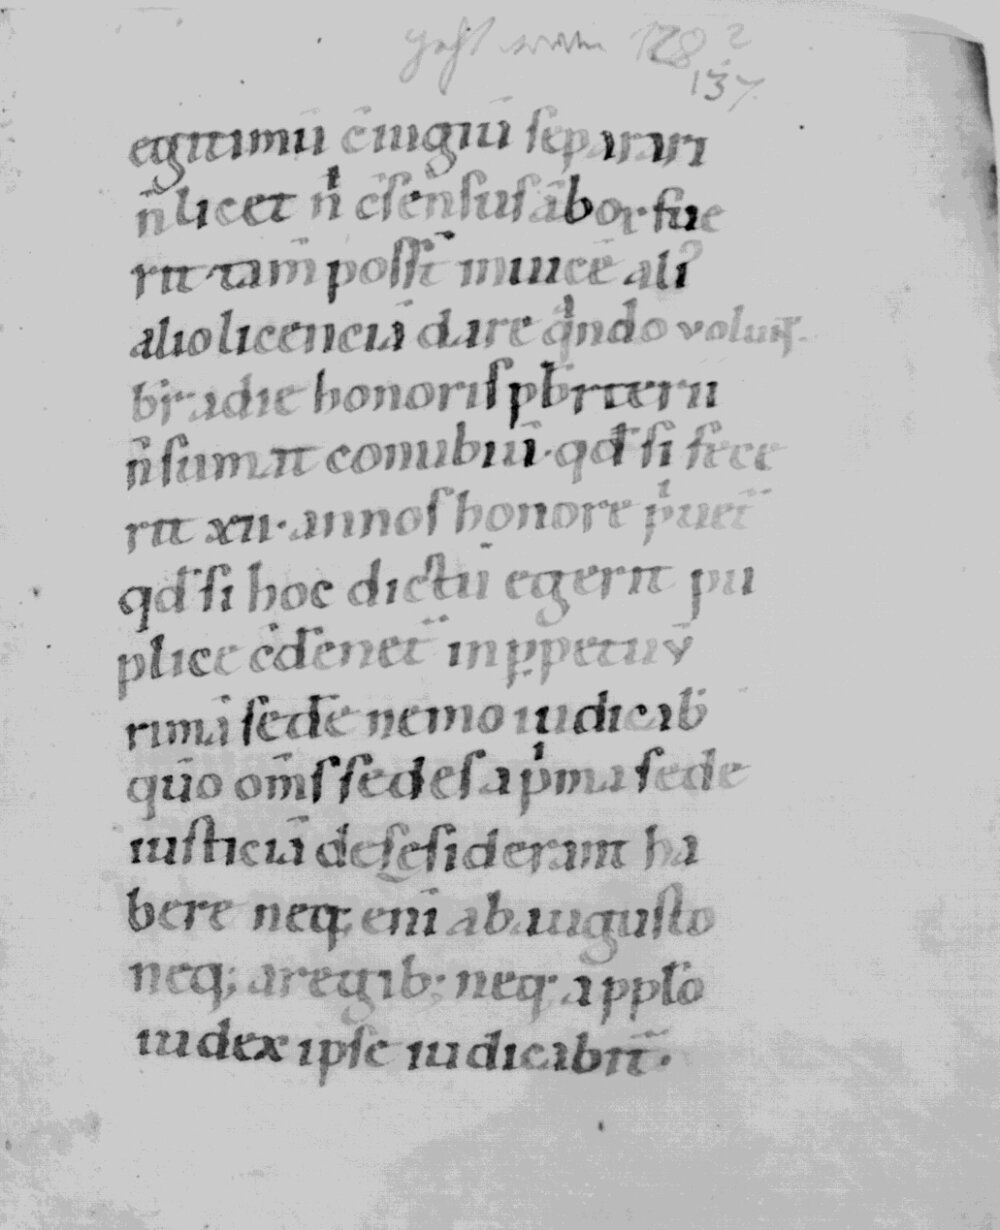 128 2
137
egitimū c̄iugiū separari
n̄ licet nͥ c̄sensus ābor fue
rit tam̄ poss̄t inuicē ali᷒
alio licenciā dare qͣndo voluīt.
br̄ a die honoris pb̄rterii
n̄ sumat conubiū. qđ si fece
rit xii. annos honore pͥuet̄
qđ si hoc dictū egerit pu
plice c̄dēnet̄ in ꝑpetuū
rimā sedē nemo iudicab̄
qūo om̄s sedes a pͥma sede
iusticiā desesiderant ha
bere neq; eni̅ ab augusto
neq; a regib; neq; a ppl̄o
iudex ipse iudicabit̄.